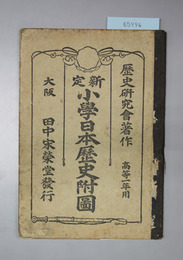 65996
歴史研究會著作
高等一年用
新定
小學日本歴史附圖
大阪
田中宋榮堂發行